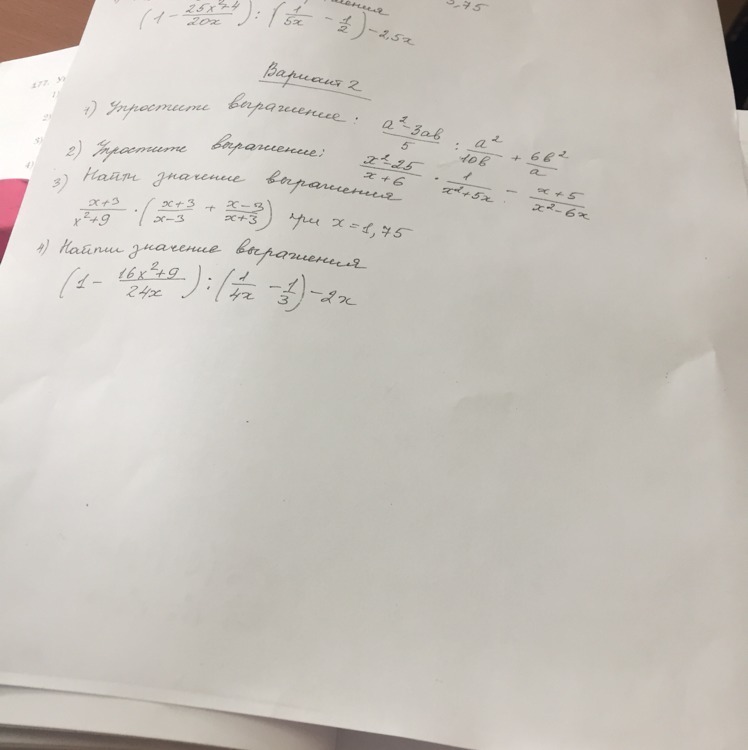 3,75
(1 - \frac{25x²+4}{20x}) : (\frac{1}{5x} - \frac{1}{2}) - 2,5x
Вариант 2
1) Упростите выражение: \frac{a²-3ab}{5} : \frac{a²}{10b} + \frac{6b²}{a}
2) Упростите выражение: \frac{x²-25}{x+6} · \frac{1}{x²+5x} - \frac{x+5}{x²-6x}
3) Найти значение выражения
\frac{x+3}{x²+9} · (\frac{x+3}{x-3} + \frac{x-3}{x+3}) при x=1,75
4) Найти значение выражения
(1 - \frac{16x²+9}{24x}) : (\frac{1}{4x} - \frac{1}{3}) - 2x